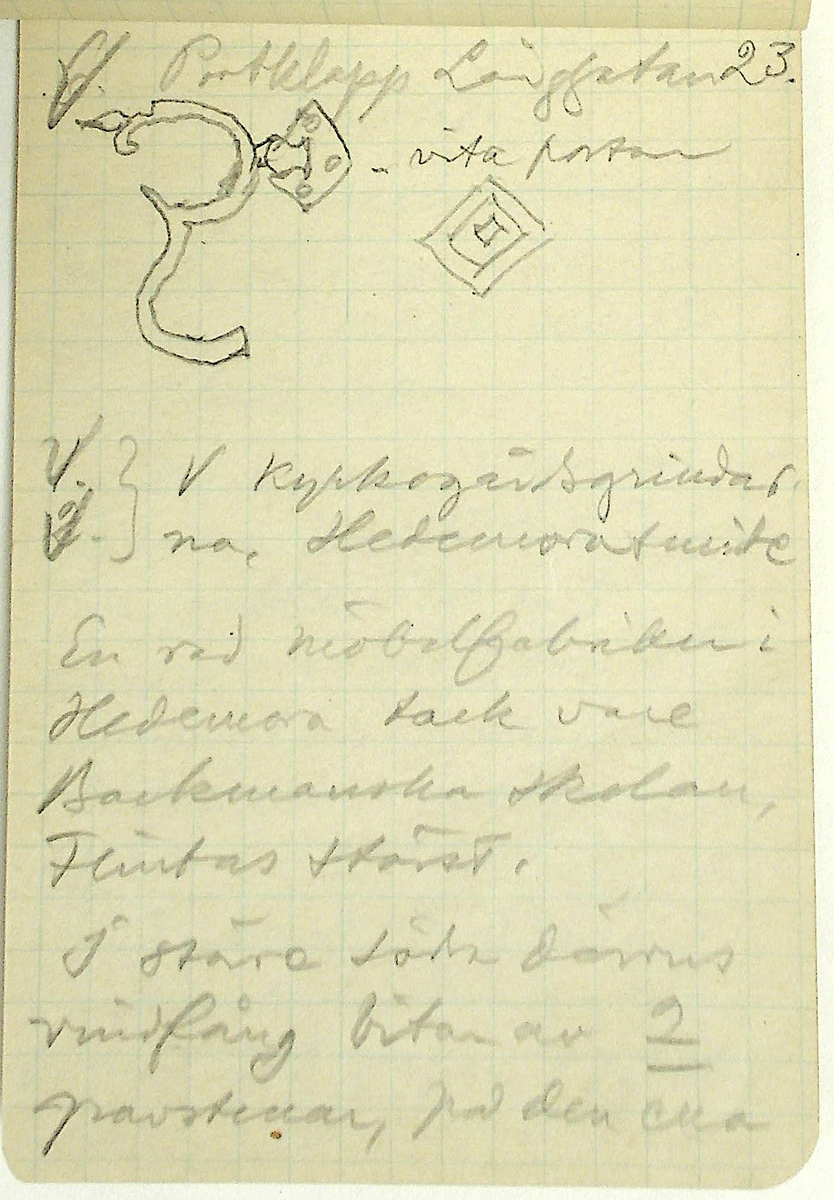 Portklapp Långgatan 23.
- vita porten
V kyrkogårdsgrindar
na, Hedemorasmide
En rad möbelfabriker i
Hedemora tack vare
Backmanska skolan,
störst.
I större södra dörrens
vindfång bitar av 2
gravstenar, på den ena